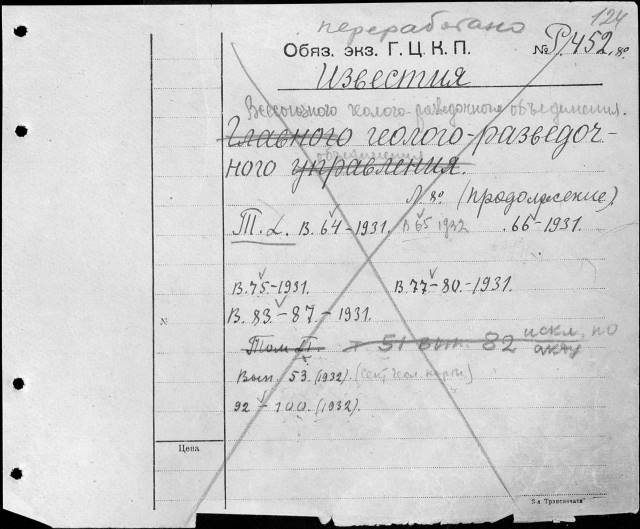 переработано
124
Обяз. экз. Г. Ц. К. П. № Р/452 8°
Известия
Всесоюзного геолого-разведочного объединения.
Главного геолого-разведоч-
объединения
ного управления.
Л. 8° (продолжение).
Т. L. В. 64-1931. В 65 1932 . 66-1931.
В. 75-1931. В. 77-80.-1931.
В. 83.-87.-1931.
№
Том LI. т 51 вып. 82 искл. по акту
Вып. 53. (1932).
92-100. (1932).
Цена
3-я "Транспечати"